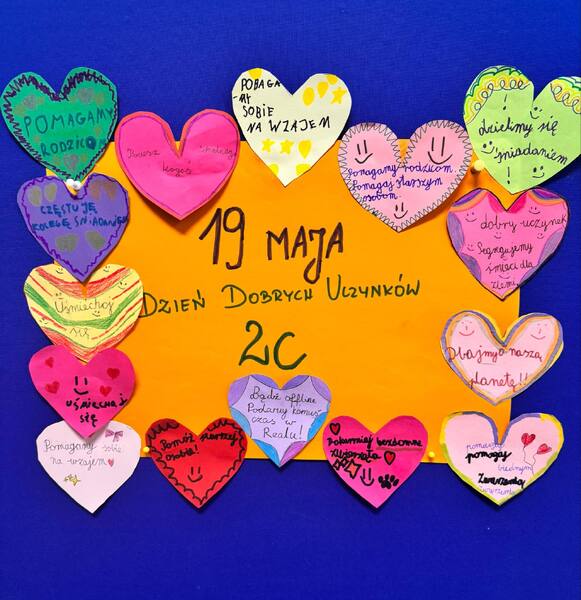 POMAGAMY
RODZICOM
POMAGA
MY
SOBIE
NA WZAJEM
dzielmy się
śniadaniem
kogoś
Pomagamy rodzicom
Pomagaj starszym
osobom
CZĘSTUJĘ
KOLEGĘ ŚNIADANIEM
dobry uczynek
Segregujemy
śmieci dla
Ziemi
19 MAJA
DZIEŃ DOBRYCH UCZYNKÓW
2C
Uśmiechaj
się
Dbajmy o naszą
planetę!!
UŚMIECHAJ
SIĘ
Bądź offline
Podaruj komuś
czas w
Realu!
Pomagamy sobie
na wzajem
Pomóż starszej
osobie!
Pokarmiaj bezdomne
zwierzęta
pomagaj
biednym
Zwierzęta